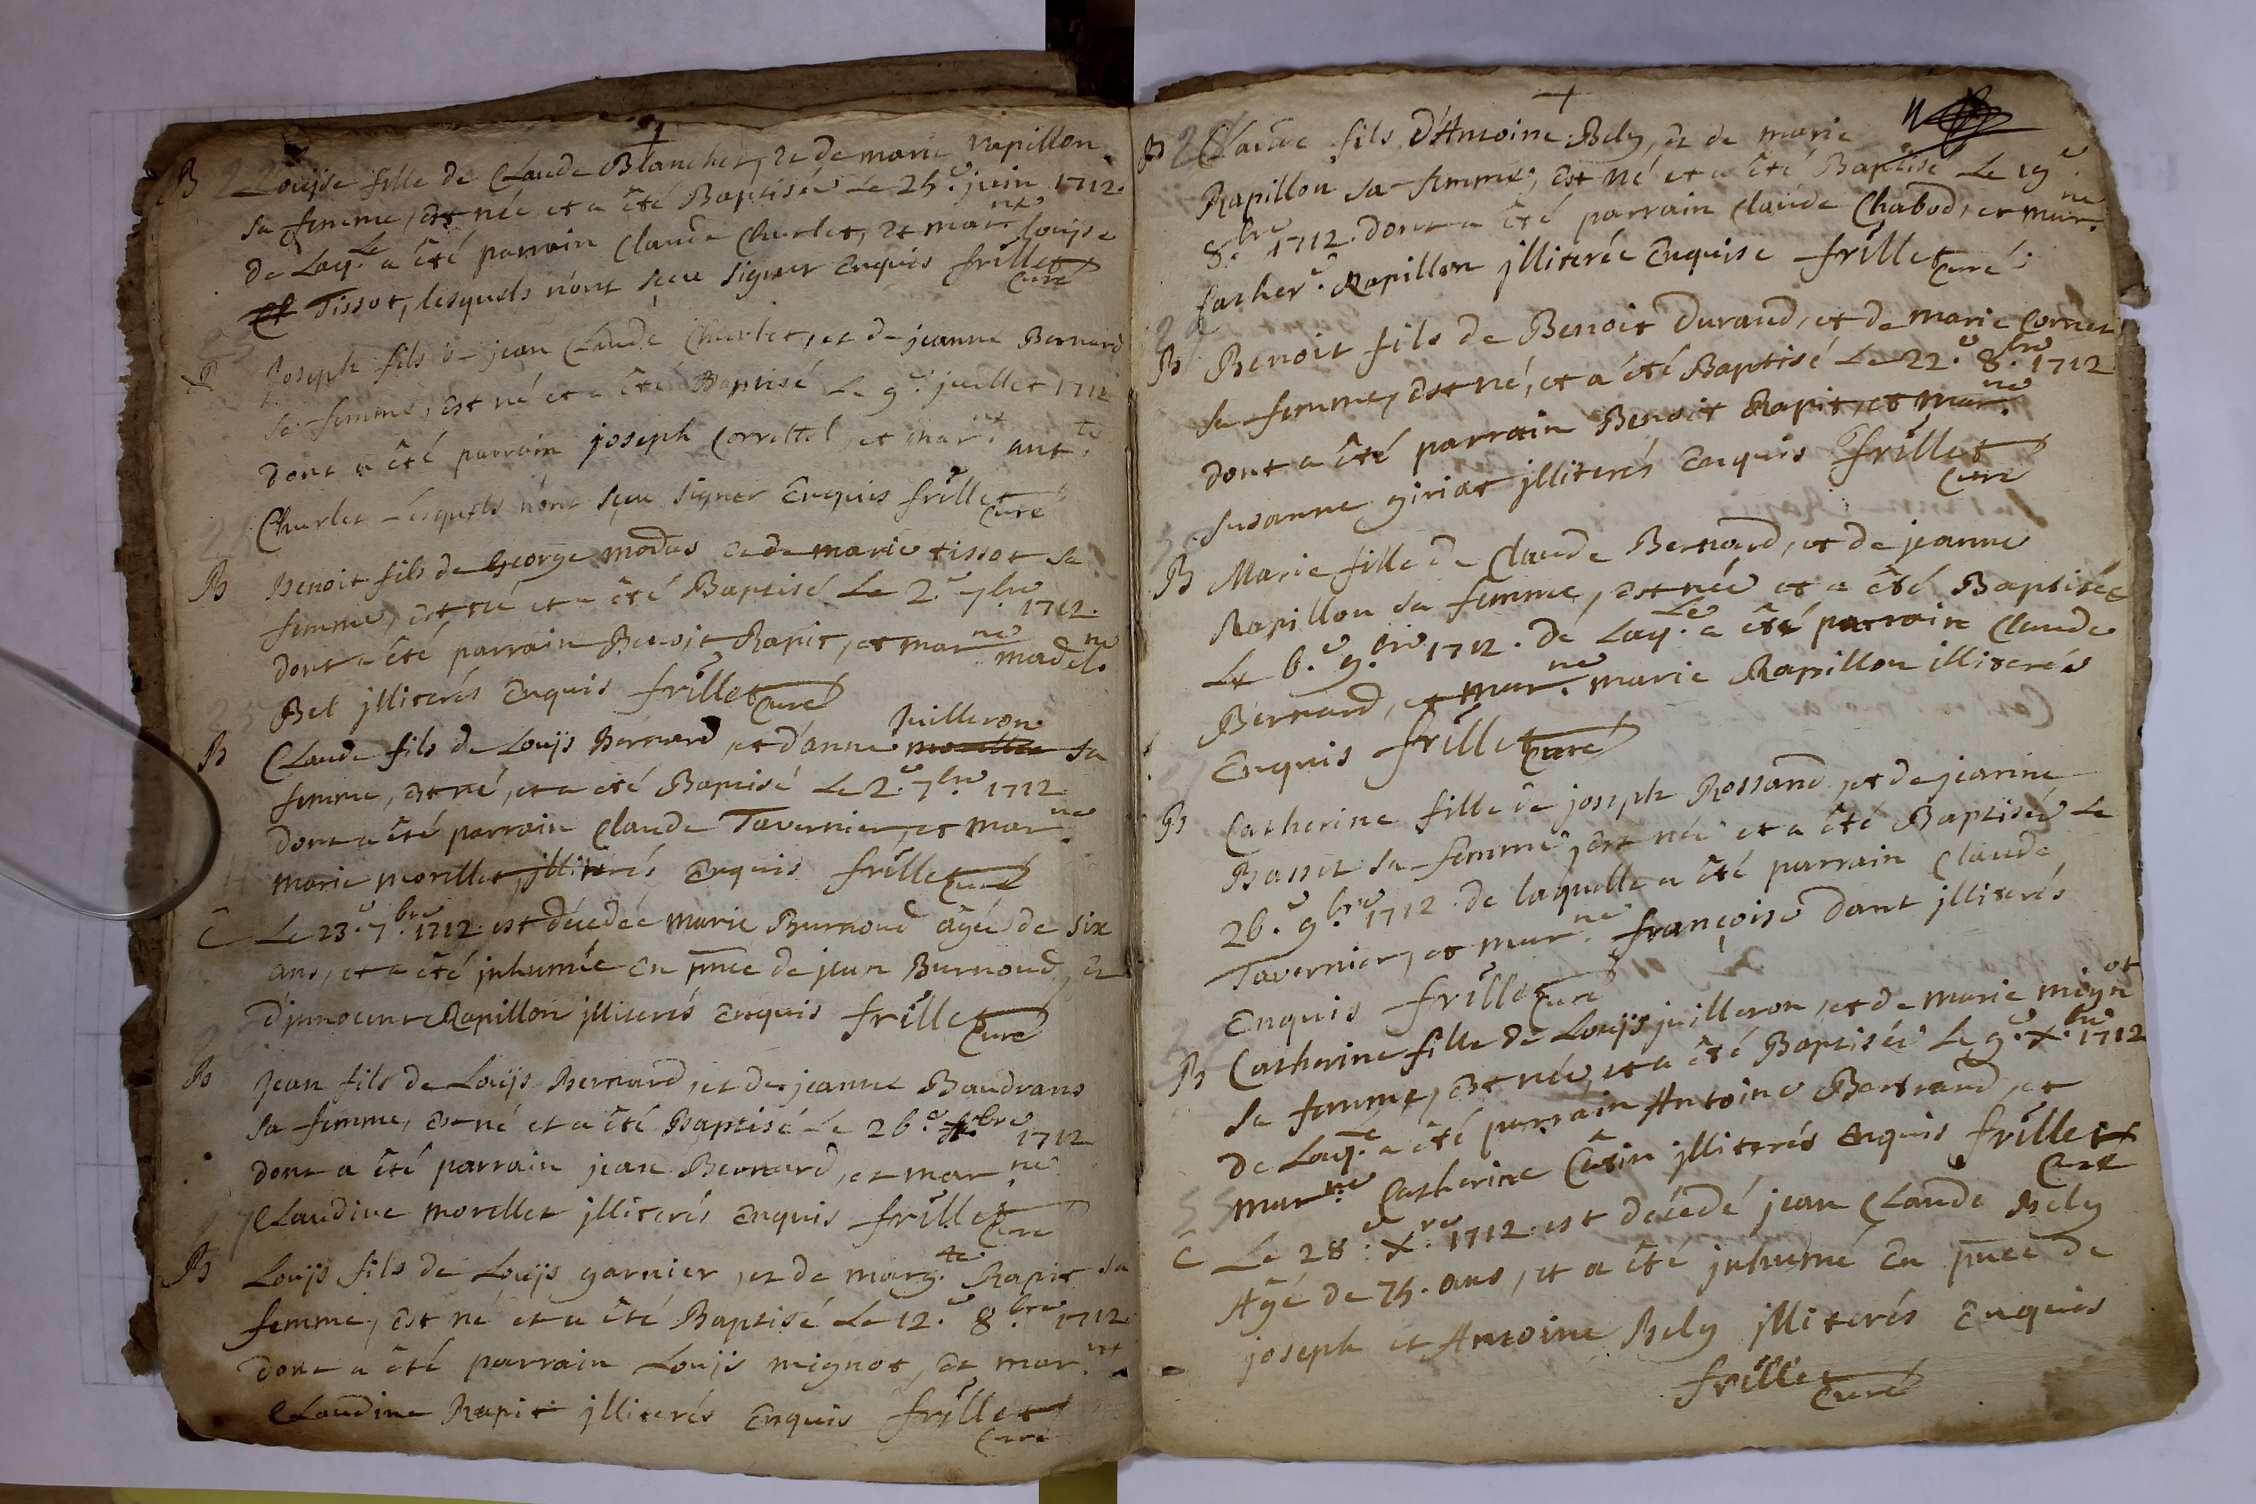 B Louise fille de Claude Blanchet, et de marie rapillon
sa femme, est née et a été Baptisée Le 25.e juin 1712.
de Laq.le a été parrain Claude Churlet, et mar.ne louise
Tissot, lesquels n'ont sçeu signer Enquis frillet Curé
B Joseph fils de jean Claude Churlet, et de jeanne Bernard
sa femme, est né et a été Baptisé Le 9.e juillet 1712
dont a été parrain joseph Corretel, et mar.ne ant.te
Churlet Lesquels n'ont sçeu signer Enquis frillet Curé
B Benoit fils de George modas et de marie tissot sa
femme, est né et a été Baptisé Le 2.e 7.bre 1712.
dont a été parrain Benoit Rapit, et mar.ne madel.ne
Bel jlliterés Enquis frillet Curé
B Claude fils de Louis Bernard, et d'anne juilleron sa
femme, est né, et a été Baptisé Le 2.e 7.bre 1712
dont a été parrain Claude Tavernier, et mar.ne
marie morellet, jlliterés Enquis frillet Curé
C Le 23.e 7.bre 1712. est décédée marie Burnoud agée de six
ans, et a été jnhumée en pnce de jean Burnoud, et
d'jnnocente Rapillon jlliterés Enquis frillet Curé
B Jean fils de Louis Bernard, et de jeanne Baudrans
sa femme, est né et a été Baptisé Le 26.e bre 1712
dont a été parrain jean Bernard, et mar.ne
Claudine morellet jlliterés Enquis frillet Curé
B Louis fils de Louis garnier, et de marg.te Rapit sa
femme, est né et a été Baptisé Le 12.e 8.bre 1712.
dont a été parrain Louis mignot, et mar.ne
Claudine Rapit jlliterés Enquis frillet Curé
11
B Claude fils d'Antoine Bely, et de marie
Rapillon sa femme, est né et a été Baptisé Le 19.e
8.bre 1712. dont a été parrain Claude Chabod, et mar.ne
Cather.e Rapillon jlliterée Enquise frillet Curé
B Benoit fils de Benoit Durand, et de marie Cornet
sa femme, est né, et a été Baptisé Le 22.e 8.bre 1712
dont a été parrain Benoit Rapit, et mar.ne
susanne giriat jlliterés Enquis frillet Curé
B Marie fille de Claude Bernard, et de jeanne
Rapillon sa femme, est née et a été Baptisée
Le 6.e 9.bre 1712. de Laq.le a été parrain Claude
Bernard, et mar.ne marie Rapillon jlliterés
Enquis frillet Curé
B Catherine fille de joseph Rossand, et de jeanne
Basset sa femme, est née et a été Baptisée Le
26.e 9.bre 1712. de laquelle a été parrain Claude
Tavernier, et mar.ne françoise dant jlliterés
Enquis frillet Curé
B Catherine fille de Louis juilleron, et de marie mignot
sa femme, est née, et a été Baptisée Le 9.e X.bre 1712
de Laq.e a été parrain Antoine Bertrand, et
mar.ne Catherine Cusin jlliterés Enquis frillet Curé
C Le 28.e X.re 1712. est décédé jean Claude Bely
Agé de 75. ans, et a été jnhumé en pnce de
joseph et Antoine Bely jlliterés Enquis
frillet Curé